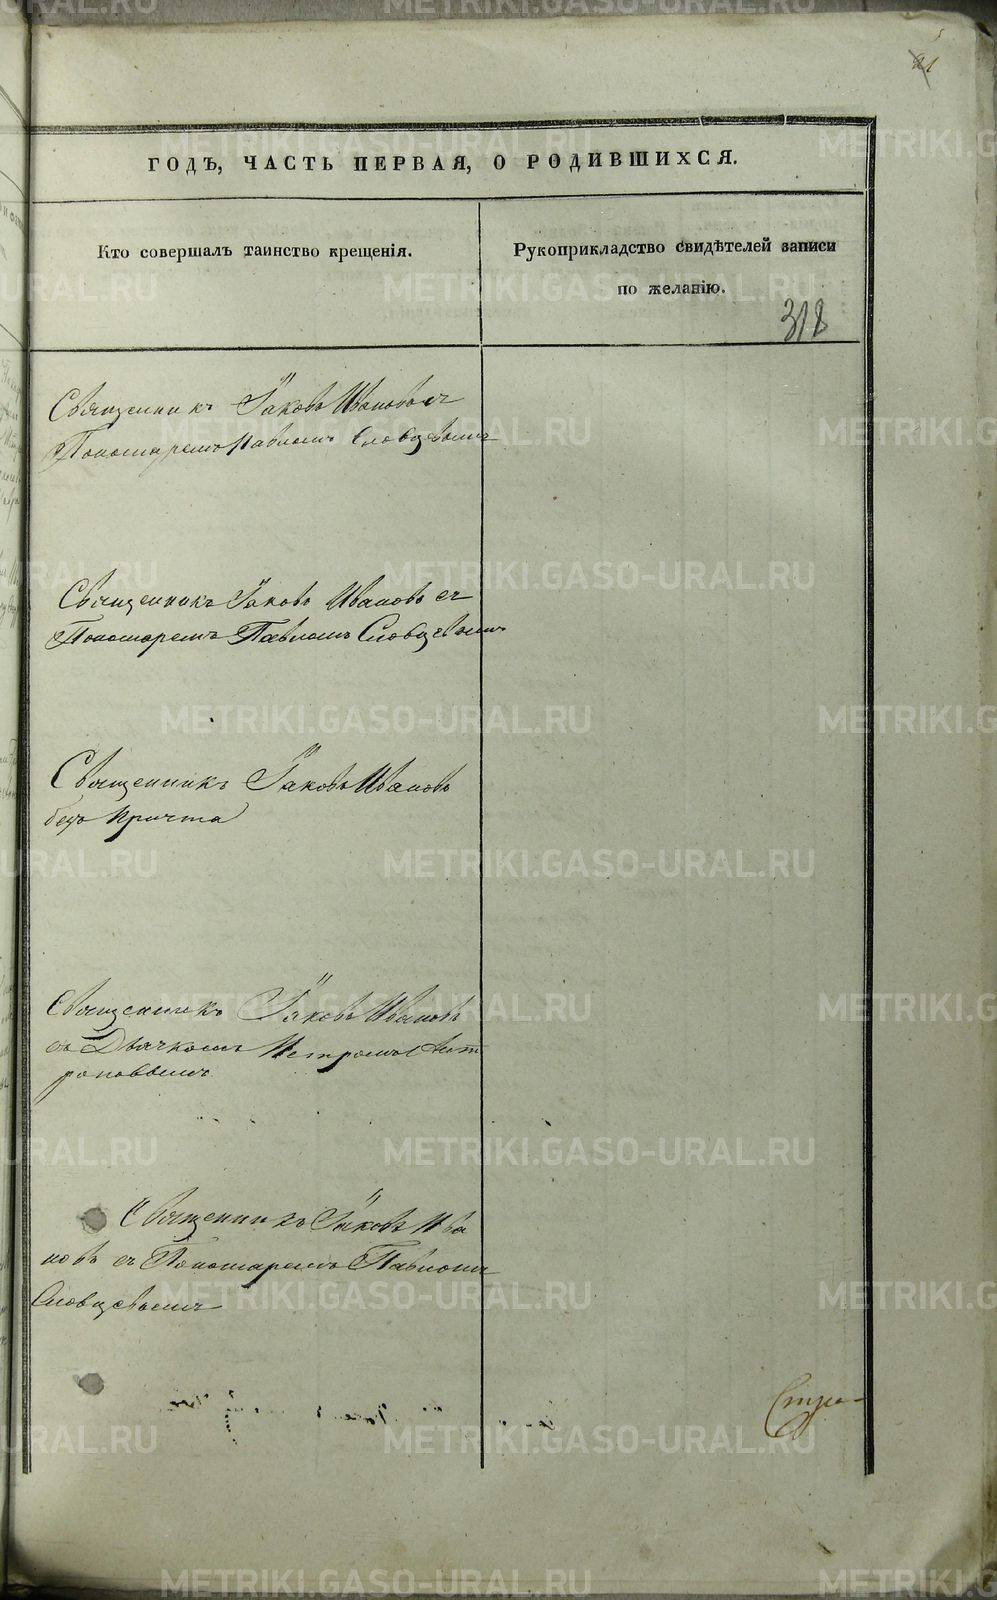 21
ГОДЪ, ЧАСТЬ ПЕРВАЯ, О РОДИВШИХСЯ.
Кто совершалъ таинство крещенія.
Рукоприкладство свидѣтелей записи
по желанію.
318
Священникъ Іаковъ Ивановъ съ
Пономаремъ Павломъ Словцевымъ
Священникъ Іаковъ Ивановъ съ
Пономаремъ Павломъ Словцевымъ
Священникъ Іаковъ Ивановъ
безъ Причта
Священникъ Іаковъ Ивановъ
съ Дьячкомъ Петромъ Ант
роповымъ
Священникъ Іаковъ Ива
новъ съ Пономаремъ Павломъ
Словцевымъ
METRIKI.GASO-URAL.RU